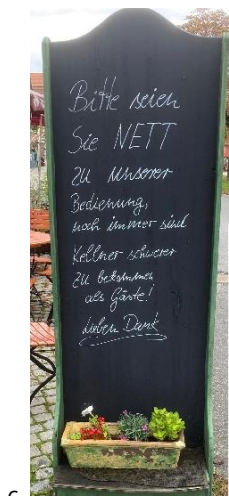 Bitte seien
Sie NETT
zu unserer
Bedienung,
noch immer sind
Kellner schwerer
zu bekommen
als Gäste!
Lieben Dank